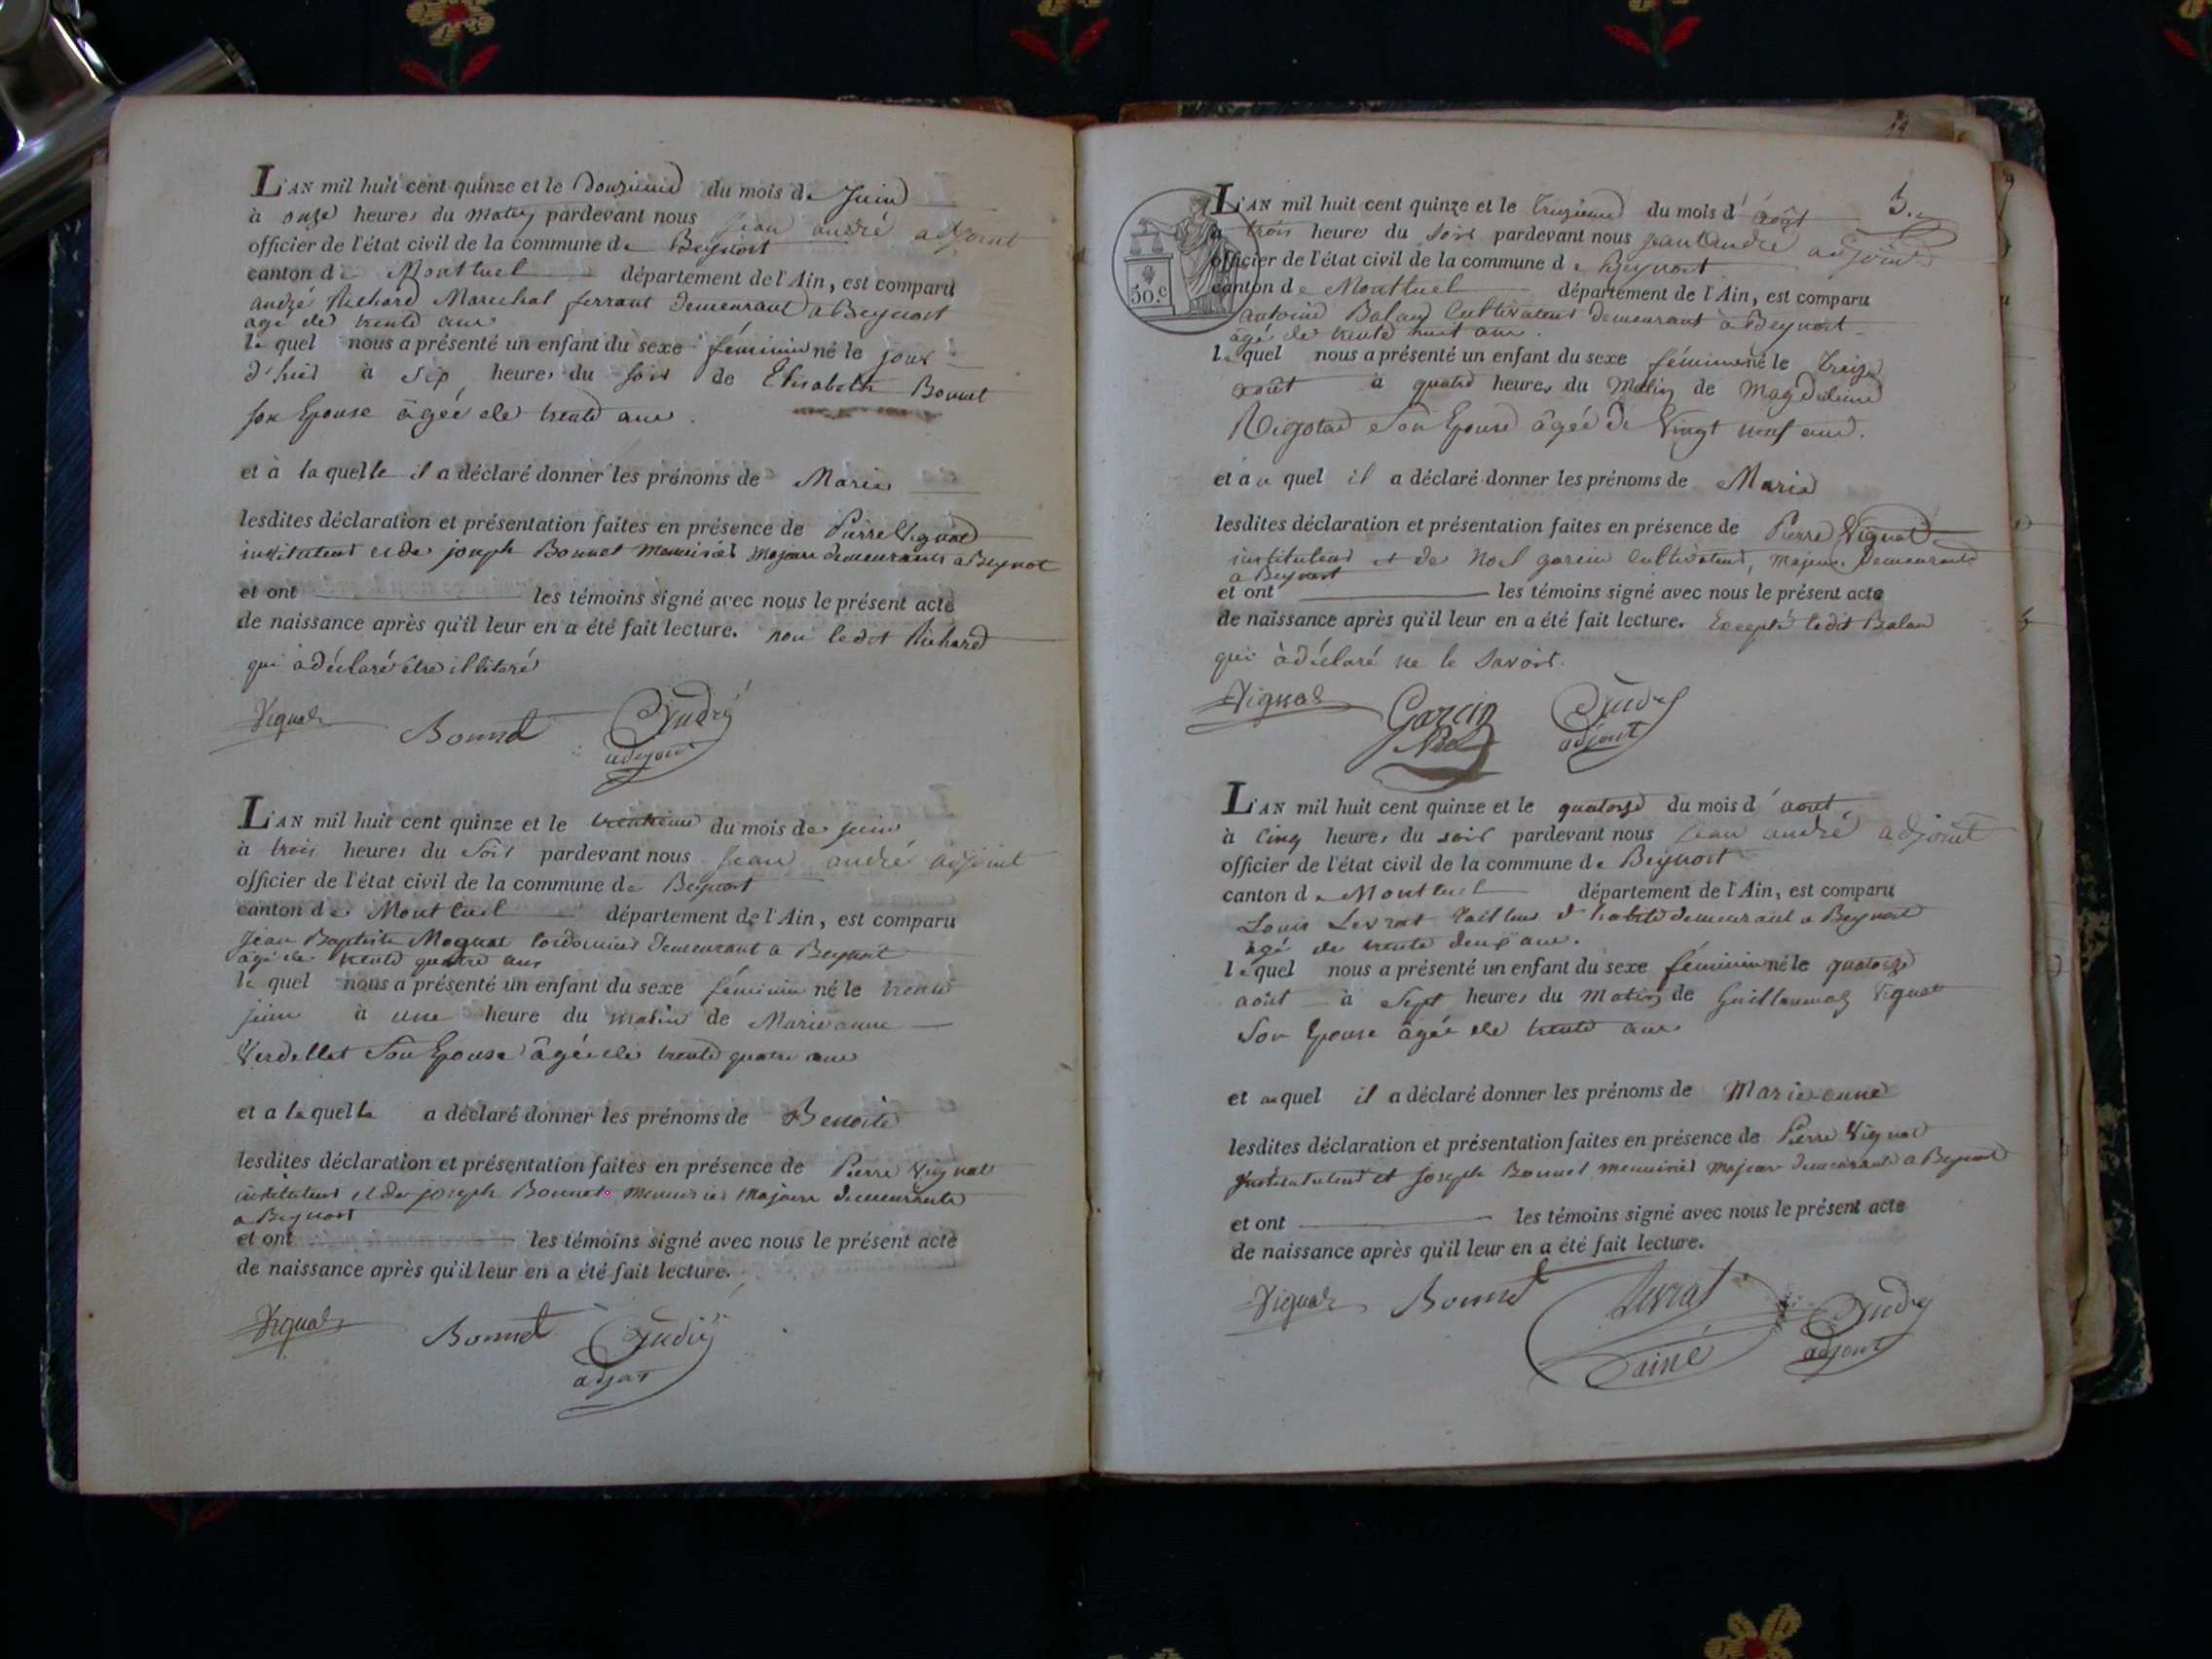 L'AN mil huit cent quinze et le Douzieme du mois de Juin
à onze heures du Matin pardevant nous jean andré adjoint
officier de l'état civil de la commune de Beynost
canton de Montluel département de l'Ain, est comparu
andré Richard Marechal ferrant demeurant a Beynost
agé de trente ans
le quel nous a présenté un enfant du sexe féminin né le jour
d'hier à six heures du soir de Elisabeth Bonnet
son Epouse âgée de trente ans.
et à la quelle il a déclaré donner les prénoms de Marie
lesdites déclaration et présentation faites en présence de Pierre Vignat
instituteur et de joseph Bonnet Menuisier majeurs demeurants a Beynost
et ont les témoins signé avec nous le présent acte
de naissance après qu'il leur en a été fait lecture. non ledit Richard
qui à déclaré être illitéré
Vignat Bonnet André
adjoint
L'AN mil huit cent quinze et le trentieme du mois de juin
à trois heures du Soir pardevant nous jean andré adjoint
officier de l'état civil de la commune de Beynost
canton de Montluel département de l'Ain, est comparu
Jean Baptiste Moguat Cordonnier Demeurant a Beynost
âgé de trente quatre ans
le quel nous a présenté un enfant du sexe féminin né le trente
juin à une heure du matin de Marie anne
Verdellet Son Epouse âgée de trente quatre ans
et a la quelle a déclaré donner les prénoms de Benoite
lesdites déclaration et présentation faites en présence de Pierre Vignat
instituteur et de joseph Bonnet Menuisier Majeurs demeurants
a Beynost
et ont les témoins signé avec nous le présent acte
de naissance après qu'il leur en a été fait lecture.
Vignat Bonnet André
adjoint
5.
50.c
L'AN mil huit cent quinze et le treizieme du mois d'août
à trois heures du soir pardevant nous jean andré adjoint
officier de l'état civil de la commune de Beynost
canton de Montluel département de l'Ain, est comparu
antoine Balan Cultivateur demeurant à Beynost
âgé de trente huit ans.
lequel nous a présenté un enfant du sexe féminin né le treize
août à quatre heures du Matin de Magdeleine
Son Epouse âgée de Vingt neuf ans.
et au quel il a déclaré donner les prénoms de Marie
lesdites déclaration et présentation faites en présence de Pierre Vignat
instituteur et de Noel garcin Cultivateur, majeurs Demeurants
a Beynost
et ont les témoins signé avec nous le présent acte
de naissance après qu'il leur en a été fait lecture. Excepté ledit Balan
qui à déclaré ne le Savoir.
Vignat Garcin André
Noel adjoint
L'AN mil huit cent quinze et le quatorze du mois d'aout
à Cinq heures du soir pardevant nous jean andré adjoint
officier de l'état civil de la commune de Beynost
canton de Montluel département de l'Ain, est comparu
Louis Levrat tailleur d'habits demeurant a Beynost
agé de trente deux ans.
lequel nous a présenté un enfant du sexe féminin né le quatorze
août à Sept heures du Matin de Guillaumaz Vignat
Son Epouse âgée de trente ans
et auquel il a déclaré donner les prénoms de Marieanne
lesdites déclaration et présentation faites en présence de Pierre Vignat
Instituteur et Joseph Bonnet menuisier Majeurs demeurants a Beynost
et ont les témoins signé avec nous le présent acte
de naissance après qu'il leur en a été fait lecture.
Vignat Bonnet Levrat André
L'ainé adjoint